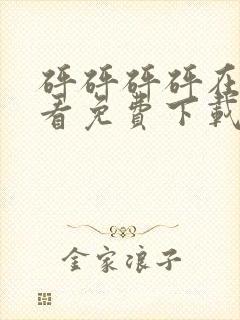 砰砰砰砰在
看免费下载
金家浪子